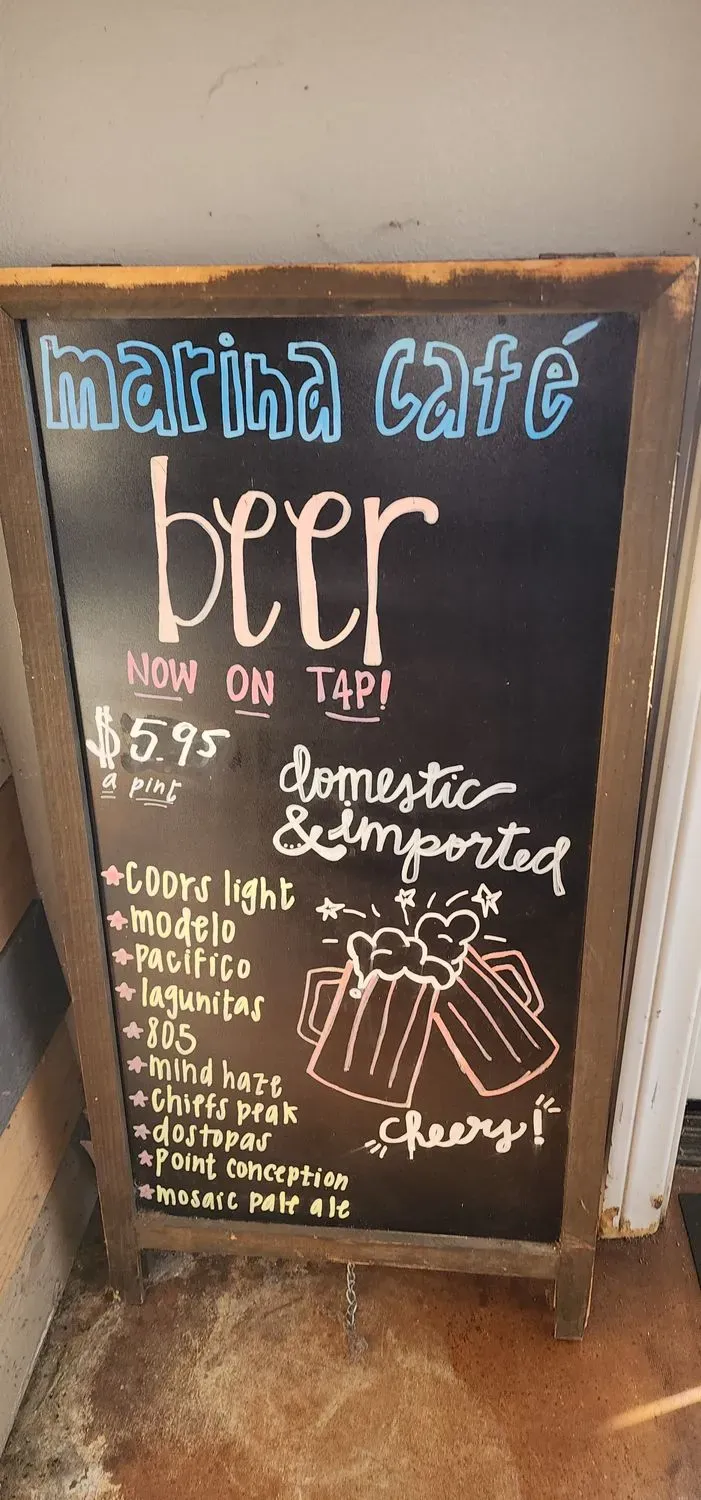 marina café
beer
NOW ON TAP!
$5.95
a pint
domestic
& imported
coors light
modelo
pacifico
lagunitas
805
mind haze
chiefs peak
dostopas
point conception
mosaic pale ale
cheers!